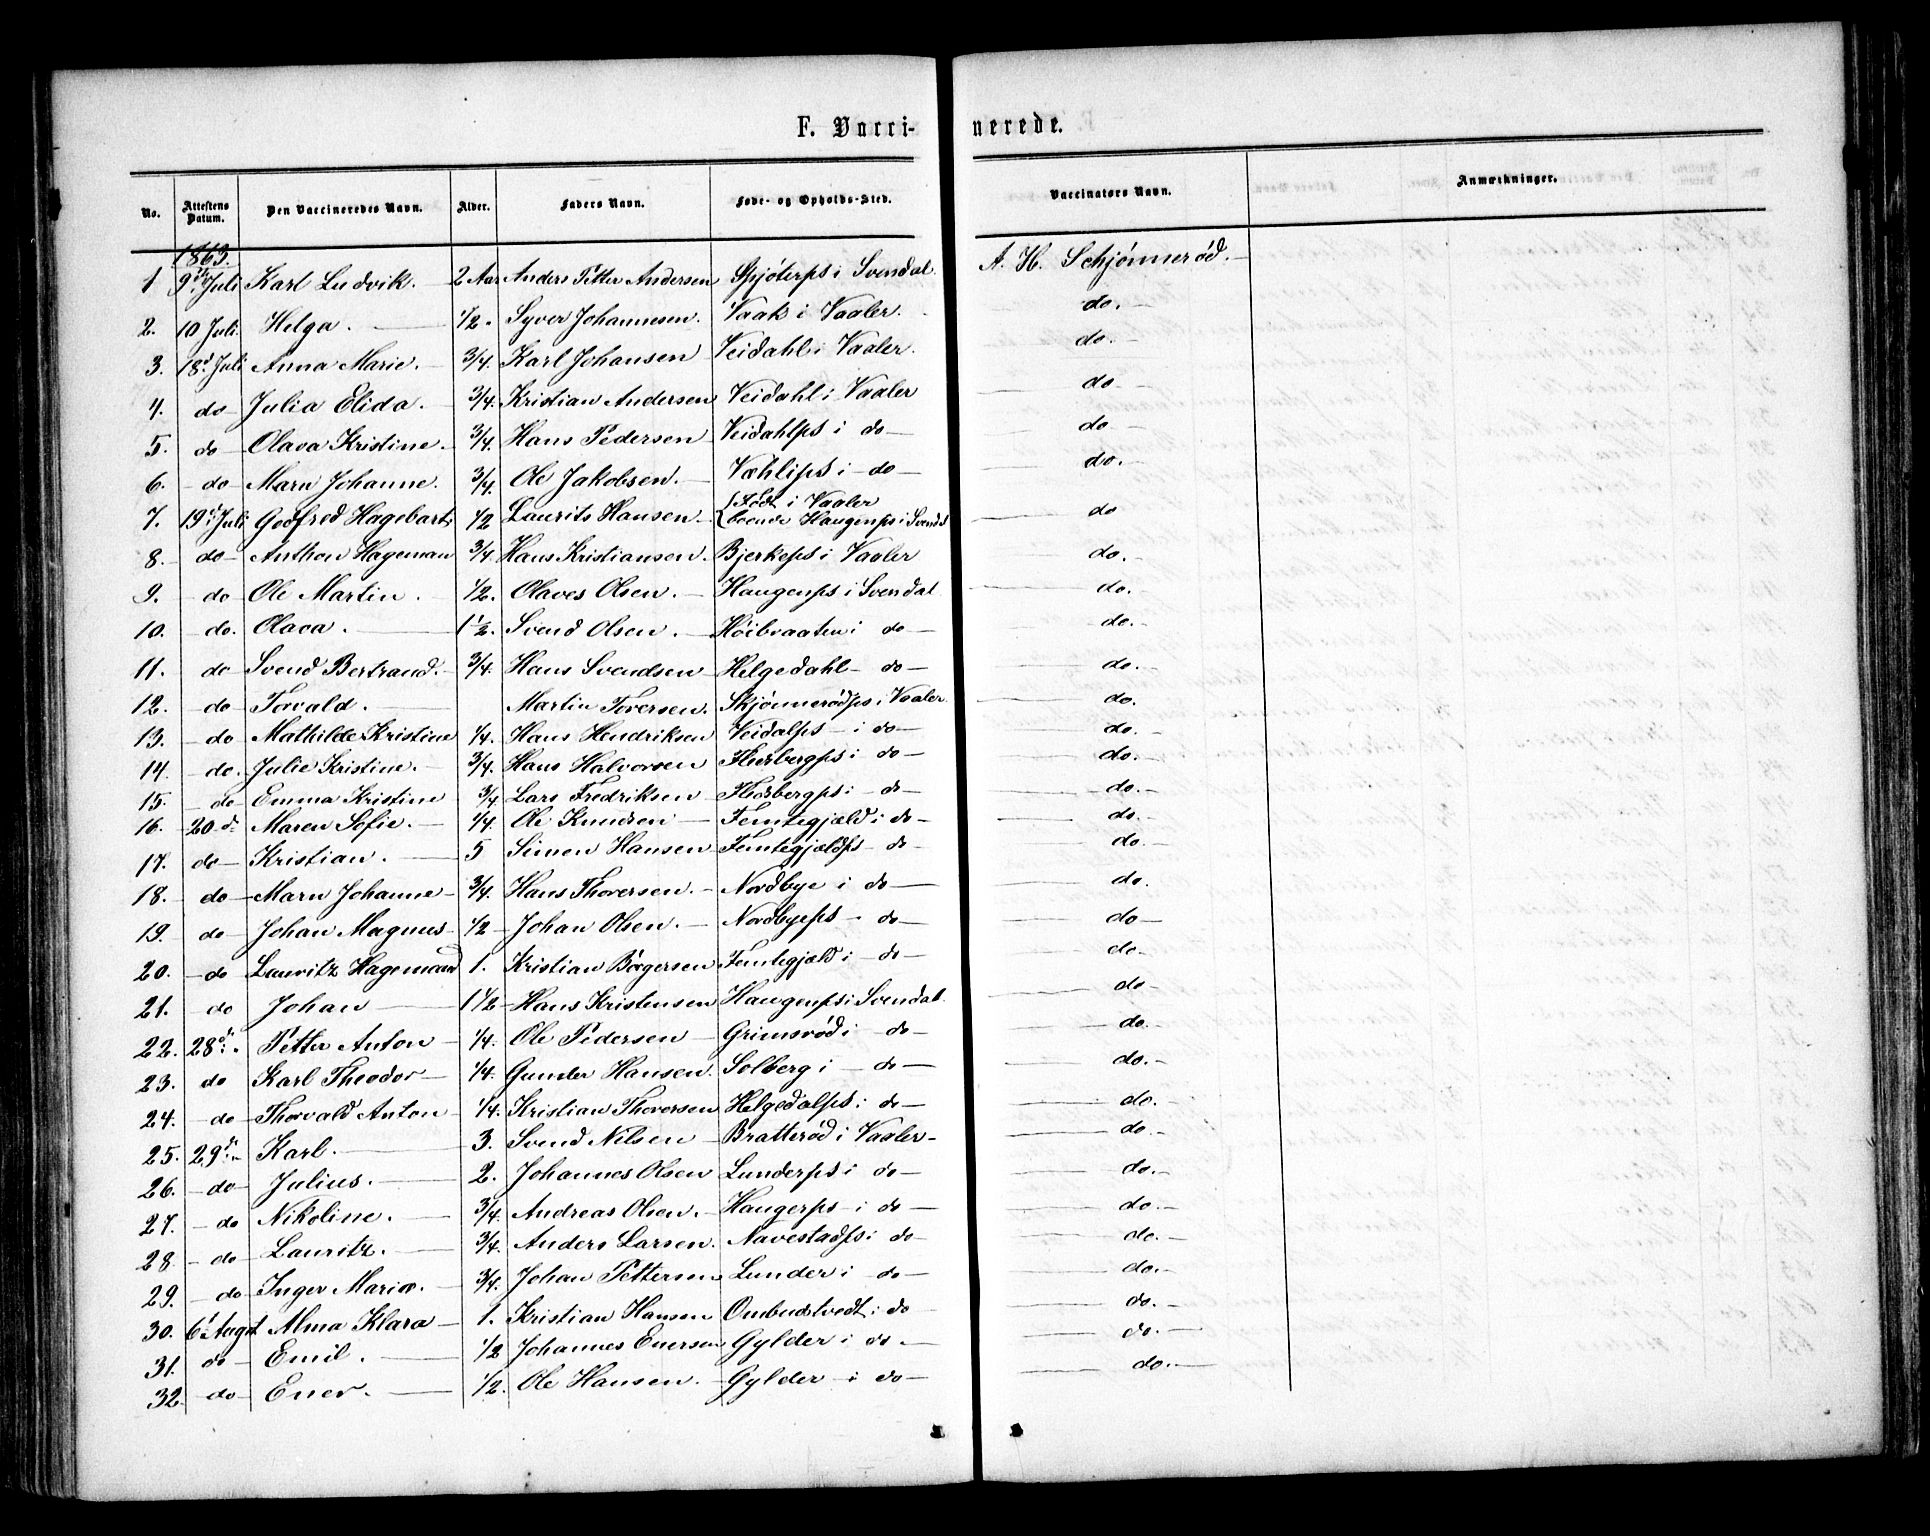 F. Vacci- nerede.
No. Attestens Datum. Den Vaccineredes Navn. Alder. Faders Navn. Føde- og Opholds-Sted. Vaccinatørs Navn. Anmærkninger.
1863.
1 9de Juli Karl Ludvik. 2 Aar Anders Petter Andersen Spjøterps i Svendal. A. H. Schjønnerød.
2. 10 Juli Helga. 1/2. Syver Johannesen. Vaak i Vaaler. do.
3. 18d Juli Anna Marie. 3/4. Karl Johansen Veidahl i Vaaler. do.
4. do Julia Elida. 3/4. Kristian Andersen Veidahl i Vaaler do
5. do Olava Kristine. 3/4. Hans Pedersen Veidahlps i do do
6. do Marn Johanne. 3/4 Ole Jakobsen. Væhlips i do do.
7. 19d Juli Godfred Hagebart 1/2 Laurits Hansen. {Født i Vaaler {boende Haugenps i Svendal do
8. do Anthon Hageman 3/4. Hans Kristiansen. Bjerkeps i Vaaler do.
9. do Ole Martin. 1/2. Olaves Olsen. Haugenps i Svendal do.
10. do. Olava. 1 1/2. Svend Olsen. Höibraaten i do do.
11. do Svend Bertrand. 3/4. Hans Svendsen Helgedahl do do.
12. do Torvald. Martin Torersen. Skjönnerödps i Vaaler do.
13. do Mathilde Kristine 1/4. Hans Hendriksen Veidalps i do do.
14. do. Julie Kristine. 3/4. Hans Halvorsen Flesbergps i do do.
15. do Emma Kristine 3/4 Lars Fredriksen Flesbergps i do do.
16. 20 d. Maren Sofie. 1/4. Ole Knudsen Femtegjæld i do do.
17. do Kristian. 5 Simen Hansen Femtegjældps do do.
18. do Marn Johanne 3/4. Hans Thoresen. Nordbye i do do.
19. do Johan Magnus 1/2 Johan Olsen. Nordbyeps do do
20. do Lauritz Hagemand 1. Kristian Börgersen Femtegjæld i do do
21. do Johan 1 1/2 Hans Kristensen Haugenps i Svendal do
22. 28d. Petter Anton 1/4. Ole Pedersen Grimsröd i do do.
23. do Karl Theodor 1/4. Gunder Hansen. Solberg i do do.
24. do Thorvald Anton 1/4. Kristian Thoresen Helgedalps i do do.
25. 29d. Karl. 3. Svend Nilsen Bratteröd i Vaaler do.
26. do Julius. 2. Johannes Olsen Lunderps i do do.
27. do Nikoline. 3/4. Andreas Olsen. Haugerps i do do.
28. do Lauritz. 3/4. Anders Larsen. Navestadps i do do.
29. do Inger Maria. 3/4. Johan Pettersen Lunder i do do.
30. 6t Augst Alma Klara 1. Kristian Hansen Ombudstvedt i do do.
31. do Emil. 1/2 Johannes Enersen Gylder i do. do.
32. do Ener. 1/2. Ole Hansen. Gylder i do do.